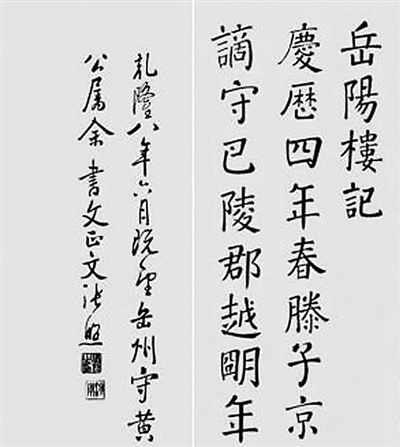 岳陽樓記
慶歷四年春滕子京
謫守巴陵郡越明年
乾隆八年六月既望岳州守黄
公屬余書文正文張照